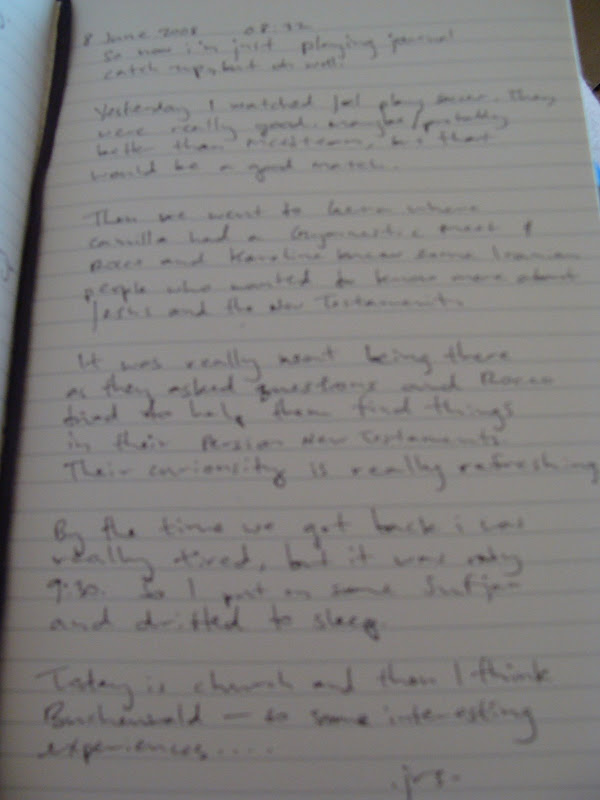 8 June 2008 08:32
So now i'm just playing journal
catch up, but oh well.
Yesterday I watched Joel play soccer. They
were really good. maybe/probably
better than, but that
would be a good match.
Then we went to where
Camilla had a Gymnastic meet &
Rocco and Karoline knew some Iranian
people who wanted to know more about
Jesus and the New Testament.
It was really neat being there
as they asked questions and Rocco
tried to help them find things
in their Persian New Testaments.
Their curiousity is really refreshing
By the time we got back i was
really tired, but it was only
9:30. So I put on some Sufjan
and drifted to sleep.
Today is church and then I think
Buchenwald — so some interesting
experiences....
.jrs.